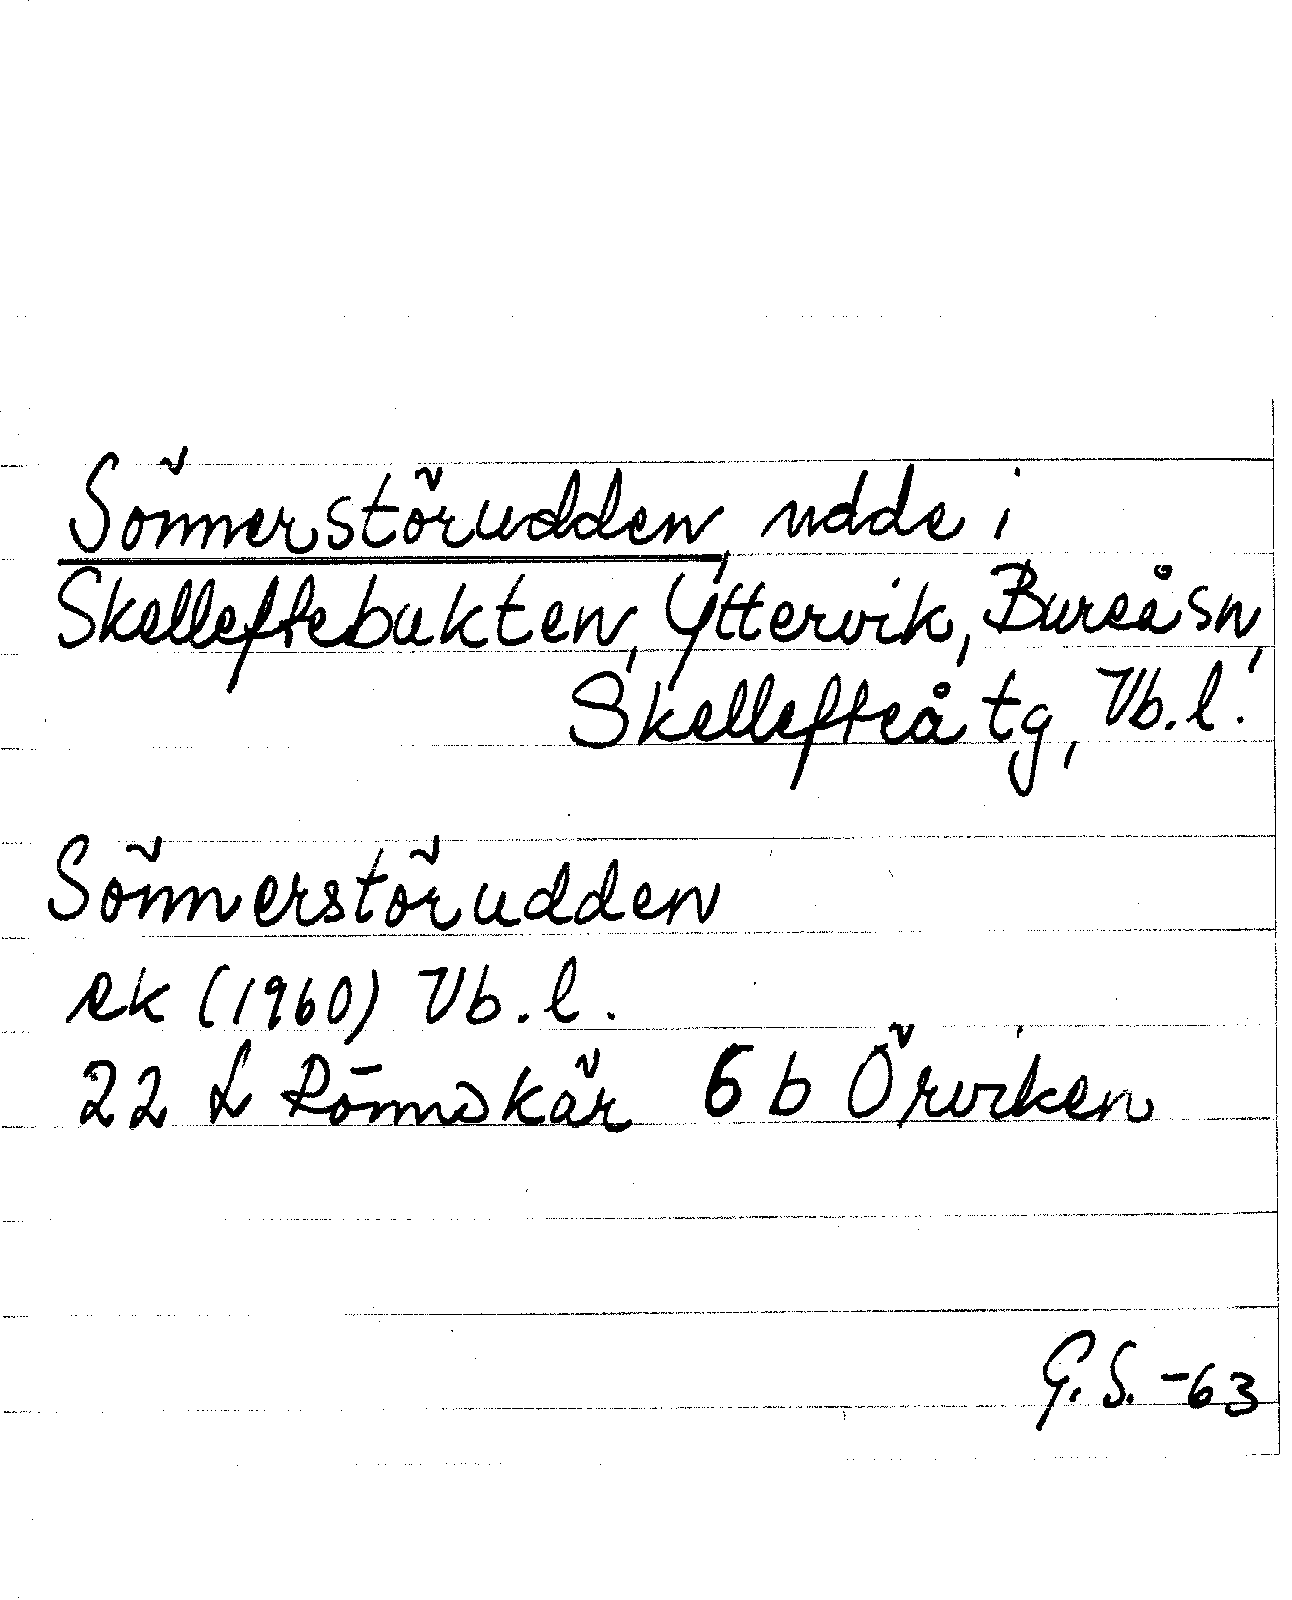 Sönnerstörudden, udde i
Skelleftebukten, Yttervik, Bureå sn,
Skellefteå tg, Vb.l.
Sönnerstörudden
ek (1960) Vb.l.
22 L Rönnskär 6 b Örviken
G.S. -63